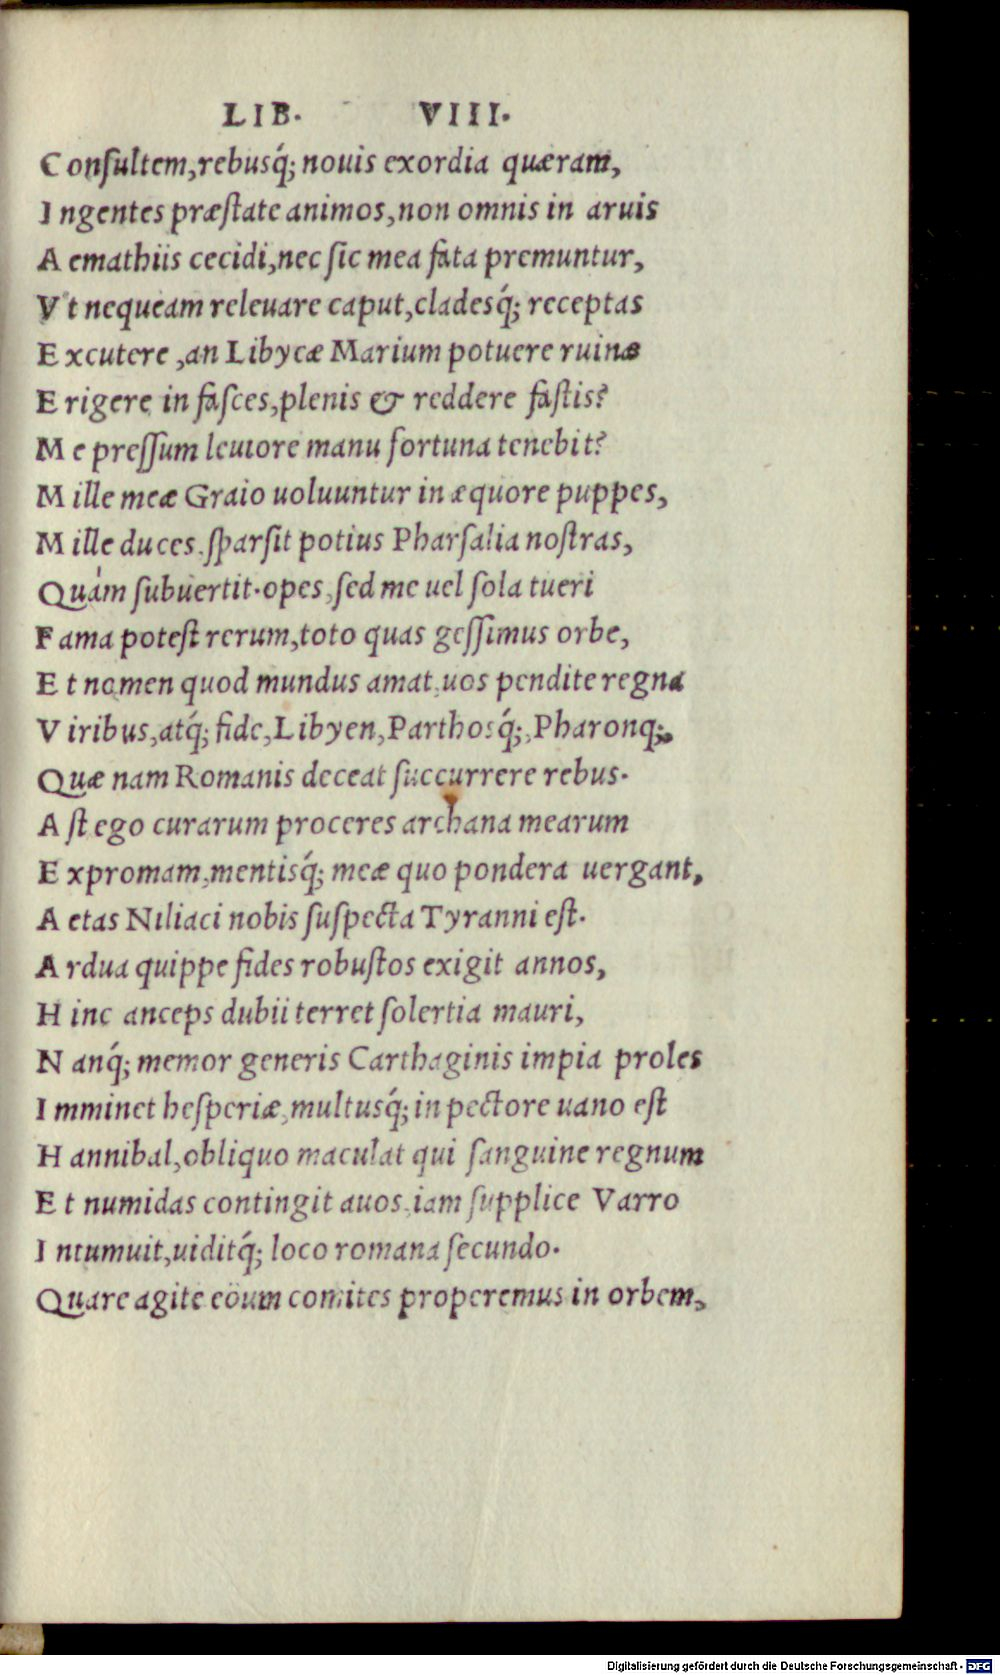 LIB. VIII.
Consultem,rebusq́; nouis exordia quæram,
Ingentes præstate animos,non omnis in aruis
Aemathiis cecidi,nec sic mea fata premuntur,
Vt nequeam releuare caput,cladesq́; receptas
Excutere ,an Libycæ Marium potuere ruinæ
Erigere in fasces,plenis & reddere fastis?
Me pressum leuiore manu fortuna tenebit?
Mille meæ Graio uoluuntur in æquore puppes,
Mille duces.sparsit potius Pharsalia nostras,
Quàm subuertit.opes,sed me uel sola tueri
Fama potest rerum,toto quas gessimus orbe,
Et nomen quod mundus amat.uos pendite regna
Viribus,atq́; fide,Libyen,Parthosq́;,Pharonq;.
Quæ nam Romanis deceat succurrere rebus.
Ast ego curarum proceres archana mearum
Expromam,mentisq́; meæ quo pondera uergant,
Aetas Niliaci nobis suspecta Tyranni est.
Ardua quippe fides robustos exigit annos,
Hinc anceps dubii terret solertia mauri,
Nanq́; memor generis Carthaginis impia proles
Imminet hesperiæ,multusq́; in pectore uano est
Hannibal,obliquo maculat qui sanguine regnum
Et numidas contingit auos.iam supplice Varro
Intumuit,uiditq́; loco romana secundo.
Quare agite eöum comites properemus in orbem,
Digitalisierung gefördert durch die Deutsche Forschungsgemeinschaft - DFG